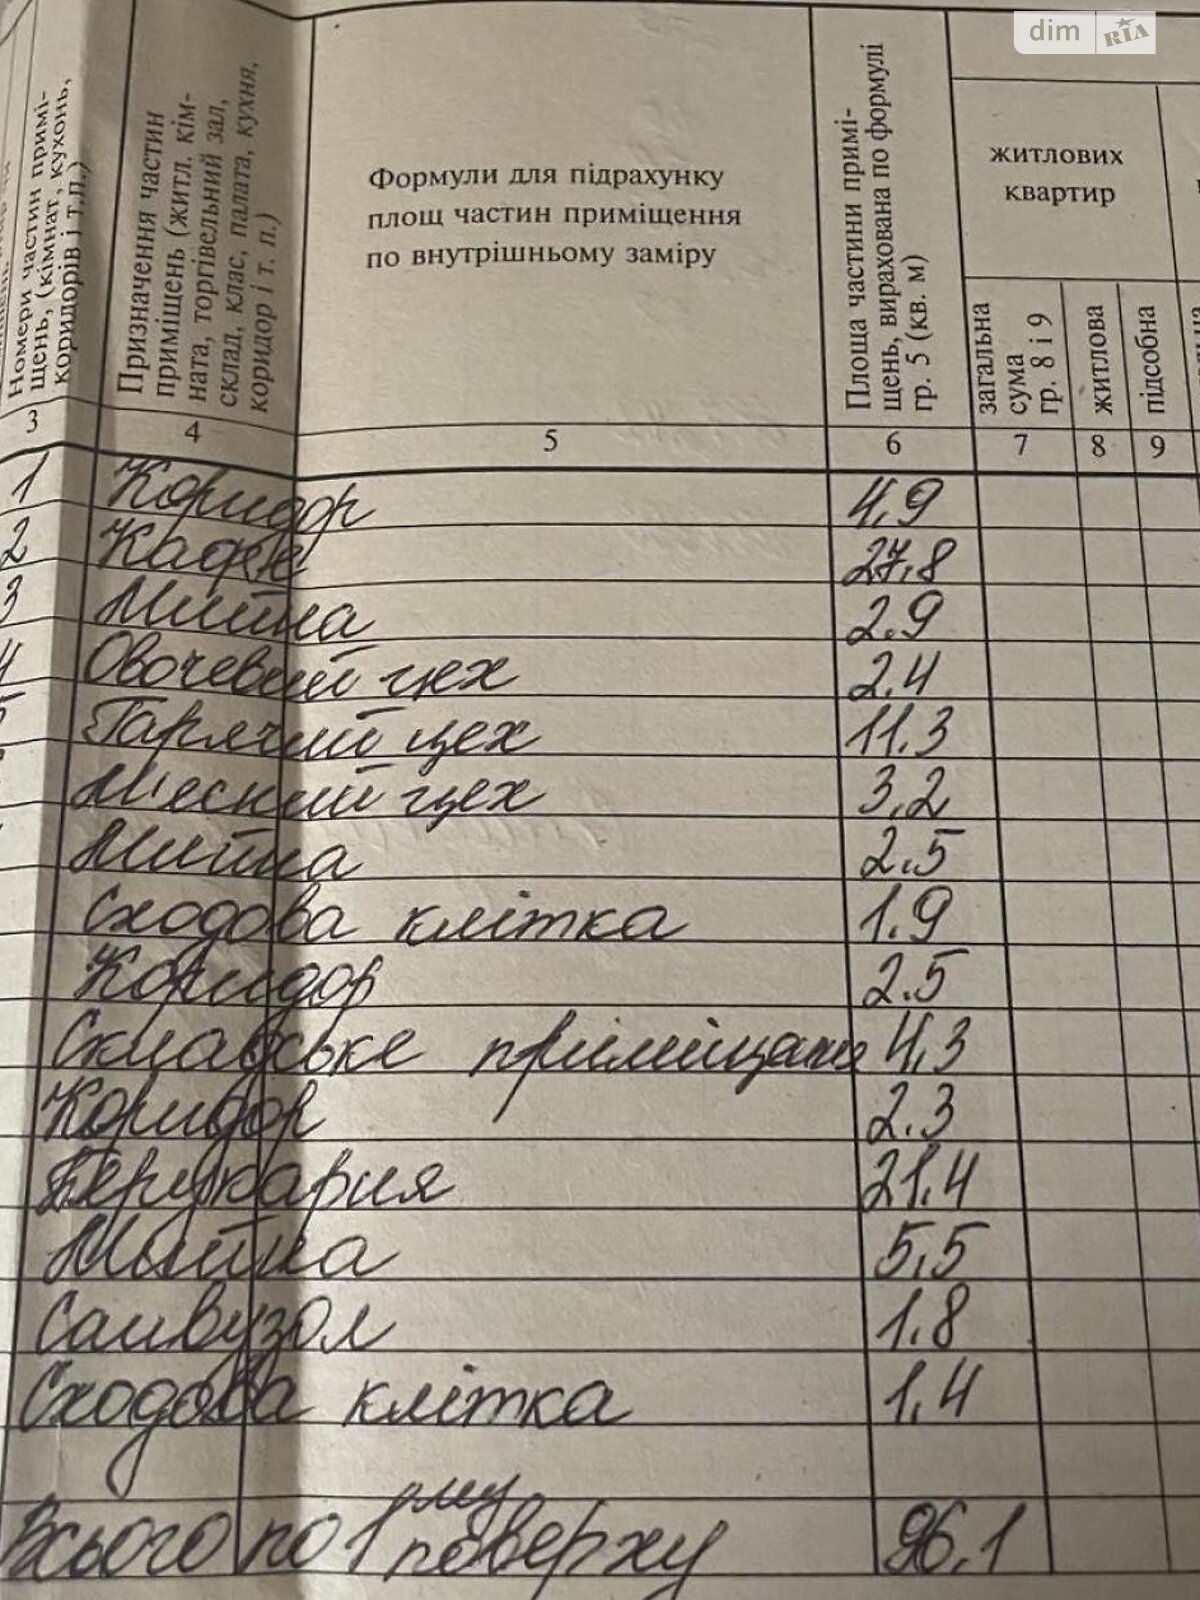 dim RIA
Номери частин примі-
щень, (кімнат, кухонь,
коридорів і т.п.)
Призначення частин
приміщень (житл. кім-
ната, торгівельний зал,
склад, клас, палата, кухня,
коридор і т. п.)
Формули для підрахунку
площ частин приміщення
по внутрішньому заміру
Площа частини примі-
щень, вирахована по формулі
гр. 5 (кв. м)
житлових
квартир
загальна
сума
гр. 8 і 9
житлова
підсобна
3 4 5 6 7 8 9
1 Коридор 4,9
2 Кафе 27,8
3 Мийна 2.9
4 Овочевий цех 2.4
5 Гарячий цех 11.3
М'ясний цех 3,2
Мийна 2.5
Сходова клітка 1.9
Коридор 2.5
4,3
Коридор 2.3
Перукарня 21,4
Мийна 5,5
Санвузол 1.8
Сходова клітка 1,4
Всього по 1му поверху 96,1